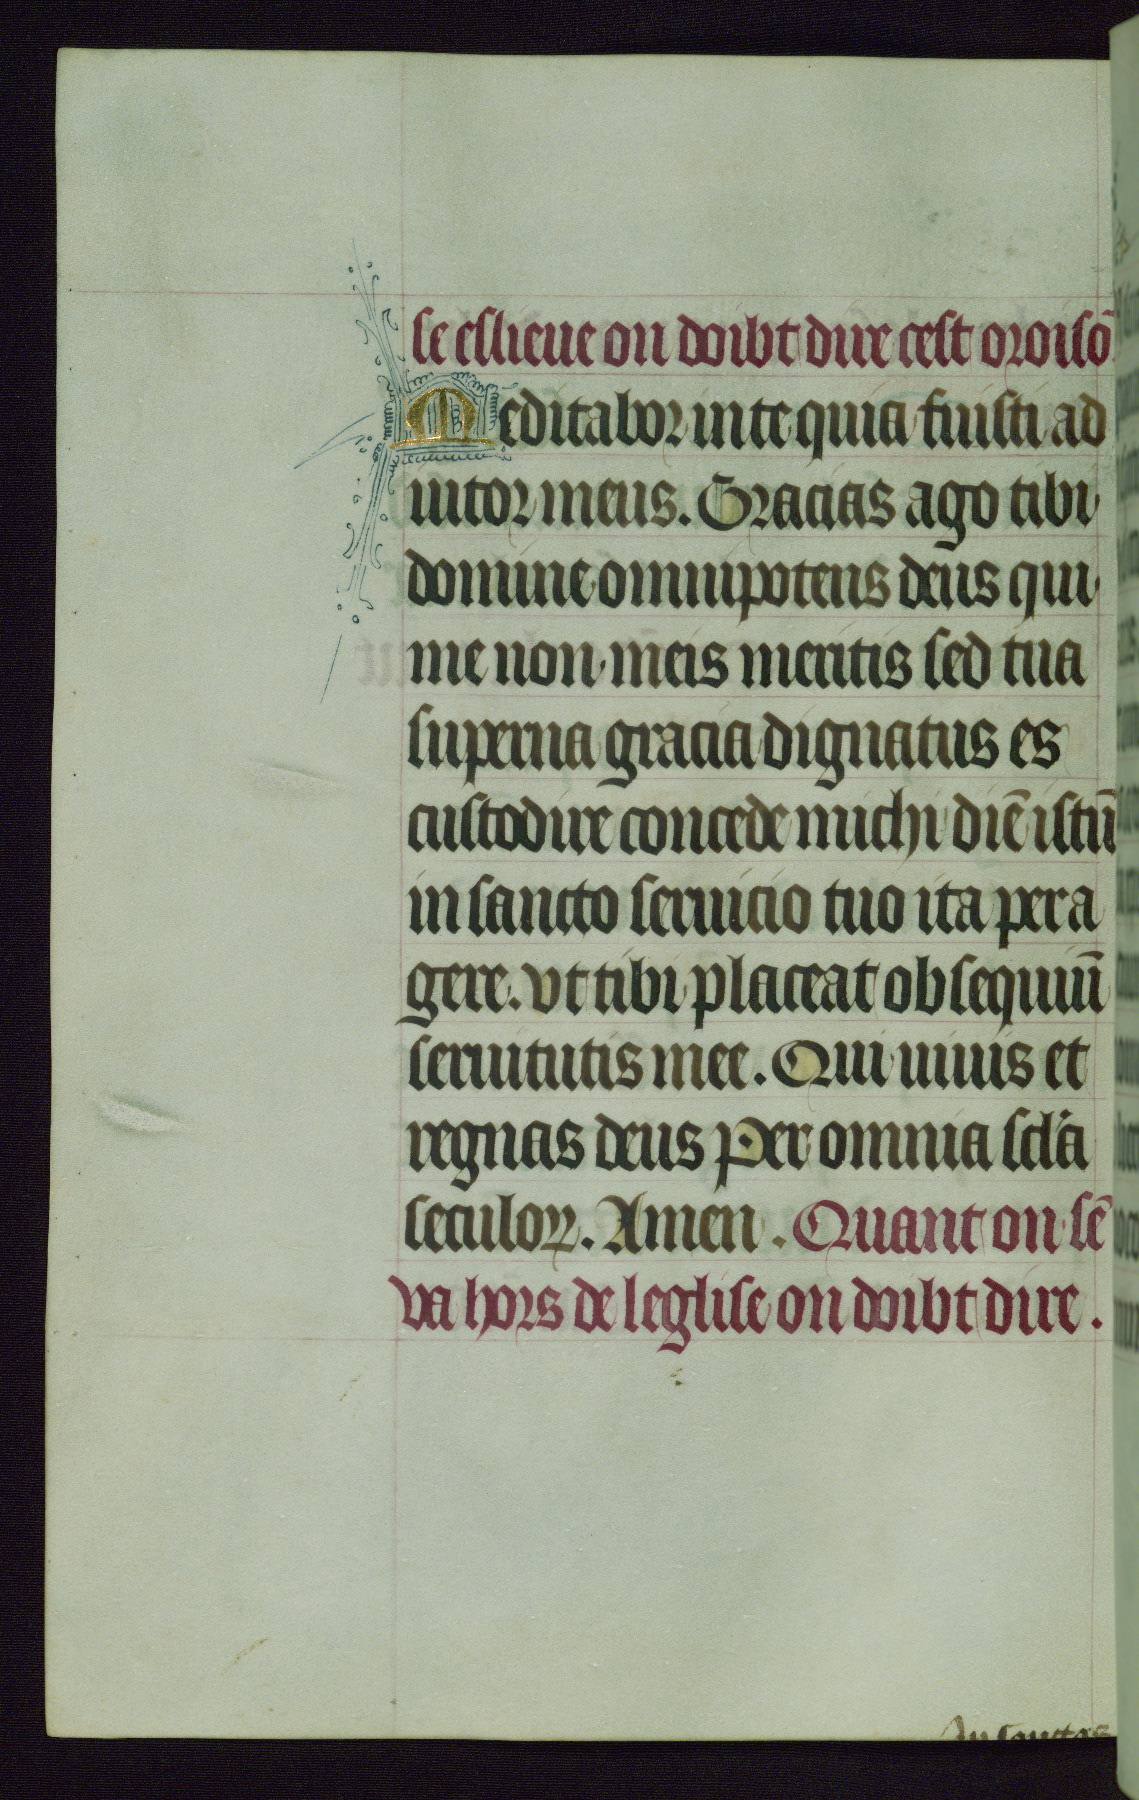 se eslieue on doibt dire cest oroisō
Meditabor in te quia fuisti ad
iutor meus. Gracias ago tibi
domine omnipotens deus qui
me non meis meritis sed tua
superna gracia dignatus es
custodire concede michi diē istū
in sancto seruicio tuo ita pera
gere. vt tibi placeat obsequiū
seruitutis mee. Qui uiuis et
regnas deus Per omnia scl'a
seculoꝝ. Amen. Quant on sē
va hors de leglise on doibt dire.